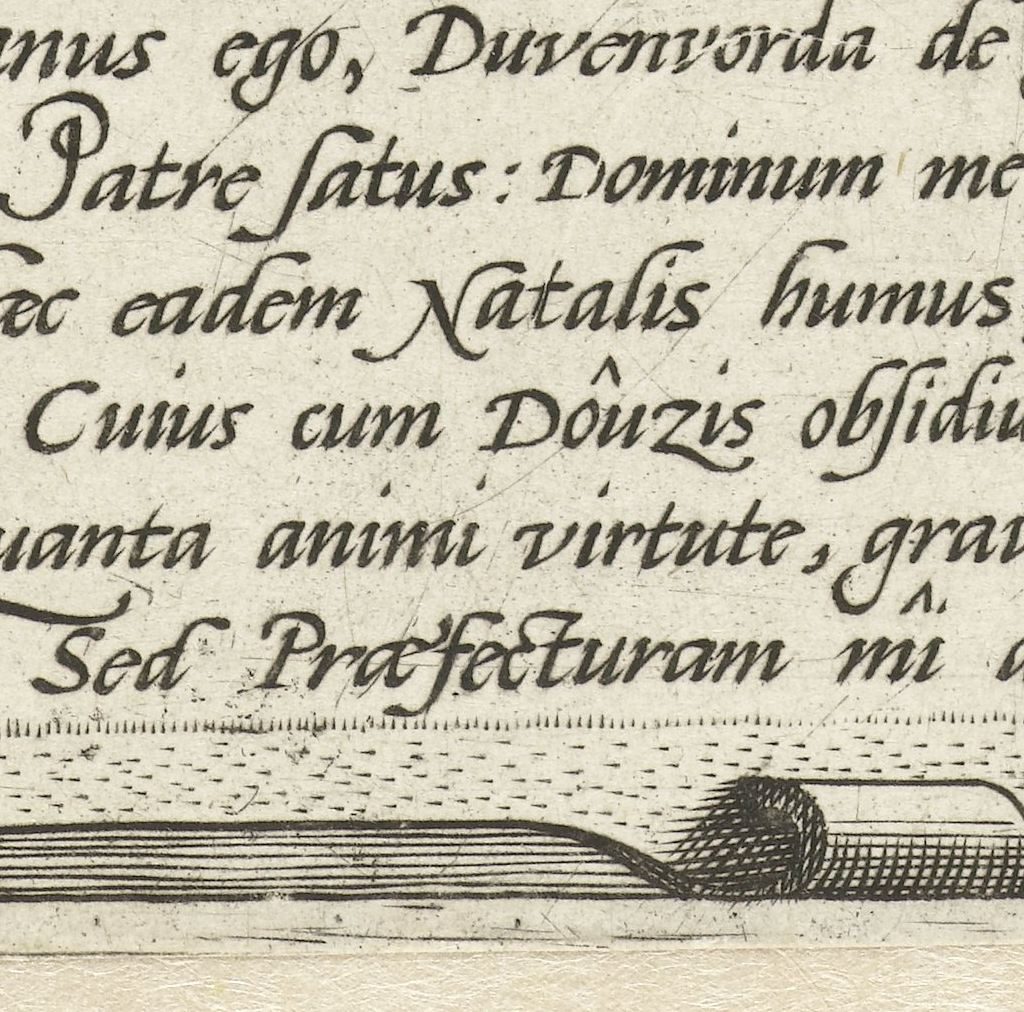 anus ego, Duvenvorda de
Patre ſatus: Dominum me
æc eadem Natalis humus
Cuius cum Dôuzis obſidiu
uanta animi virtute, grav
Sed Præfecturam mî a